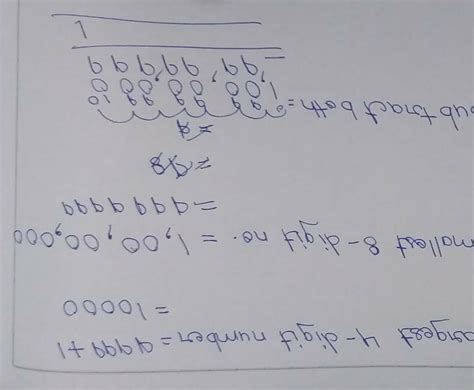 argest 4-digit number = 9999+1
= 10000
mallest 8-digit no. = 1,00,00,000
= 9999999
ubtract both = 0 9 9 9 9 9 10
1 00 00 000
- 99,99,999
1